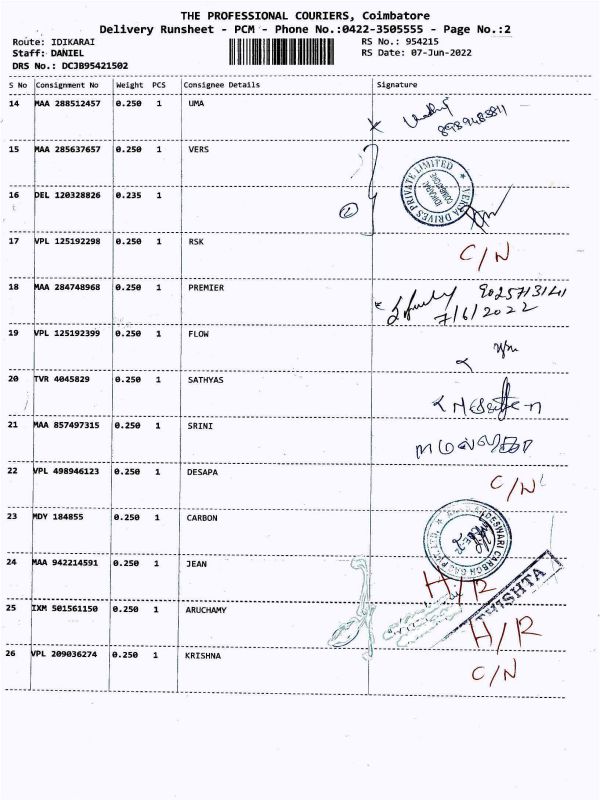 THE PROFESSIONAL COURIERS, Coimbatore
Delivery Runsheet - PCM - Phone No.:0422-3505555 - Page No.:2
Route: IDIKARAI RS No.: 954215
Staff: DANIEL RS Date: 07-Jun-2022
DRS No.: DCJB95421502
S No Consignment No Weight PCS Consignee Details Signature
14 MAA 288512457 0.250 1 UMA
15 MAA 285637657 0.250 1 VERS
VERSA DRIVES PRIVATE LIMITED
IDIKARAI
COIMBATORE
16 DEL 120328826 0.235 1
2
17 VPL 125192298 0.250 1 RSK C/N
18 MAA 284748968 0.250 1 PREMIER
7/6/2022
19 VPL 125192399 0.250 1 FLOW
20 TVR 4045829 0.250 1 SATHYAS
21 MAA 857497315 0.250 1 SRINI
22 VPL 498946123 0.250 1 DESAPA C/N
23 MDY 184855 0.250 1 CARBON
24 MAA 942214591 0.250 1 JEAN H/R
25 IXM 501561150 0.250 1 ARUCHAMY H/R
26 VPL 209036274 0.250 1 KRISHNA C/N